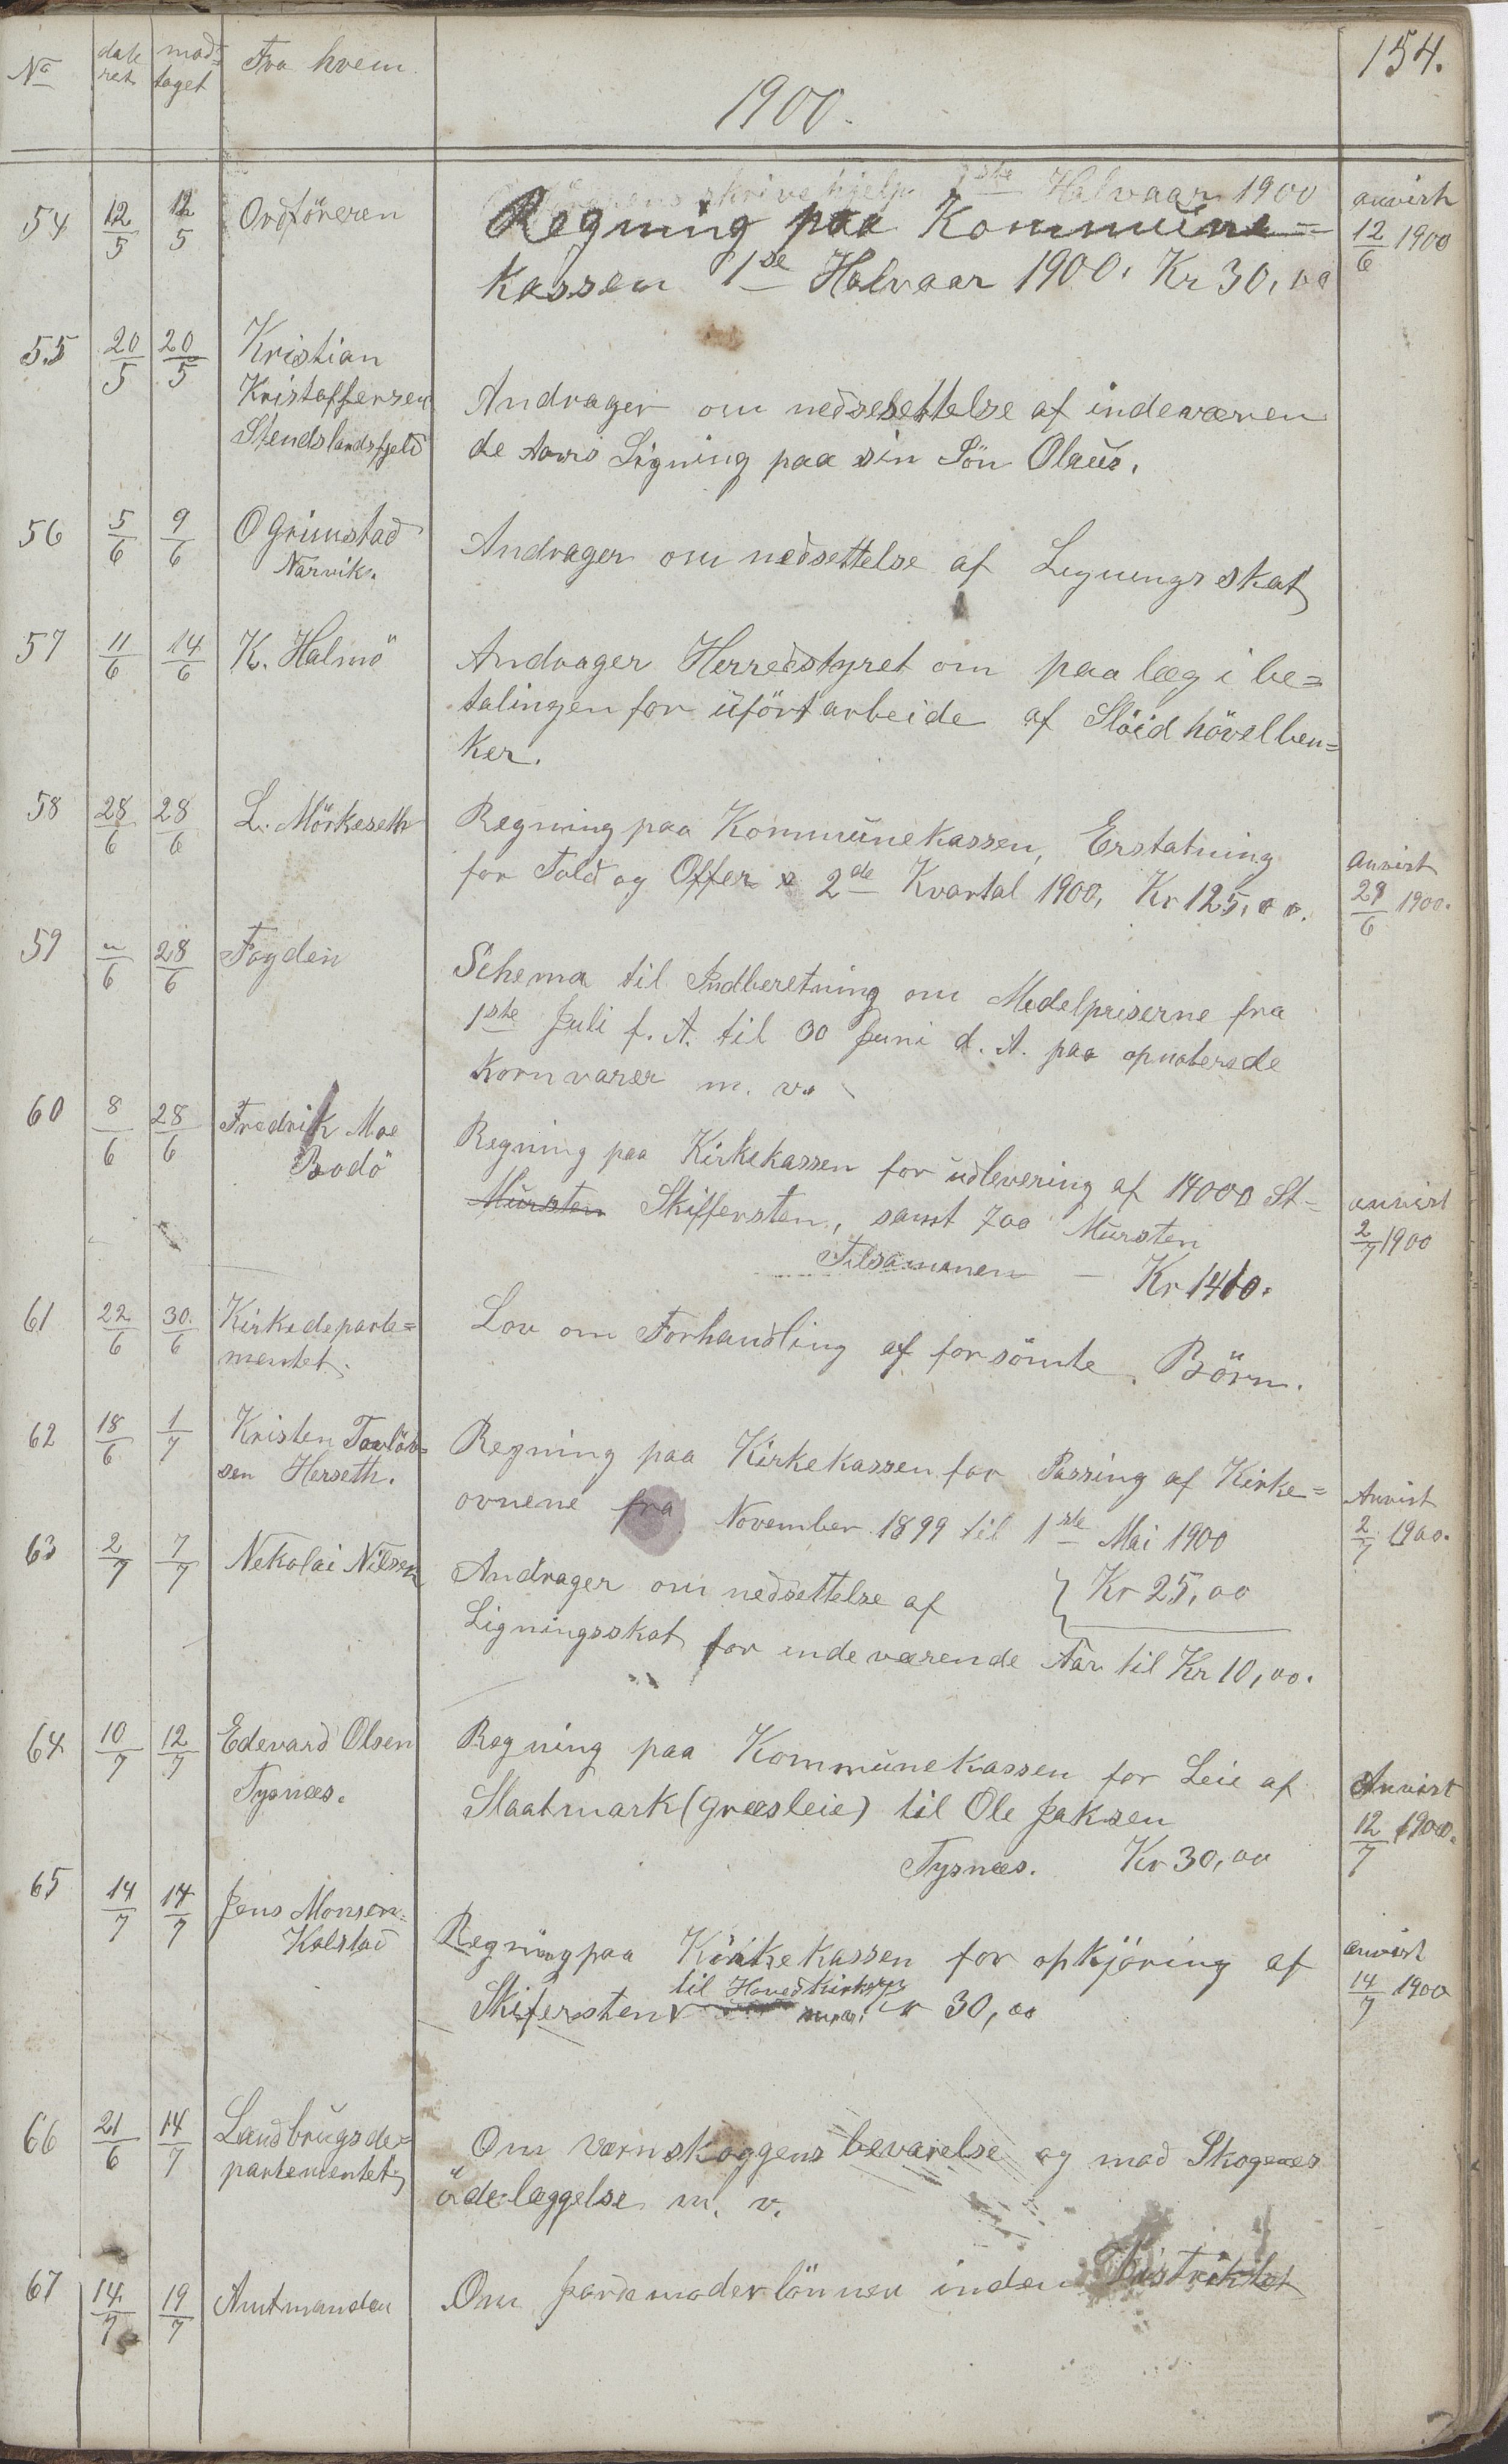 154.
No date ret mod= taget Fra hvem
1900.
54 12/5 12/5 Ordföreren
skrivehjelp 1ste Halvaar 1900
Regning paa Kommune=
kassen 1se Halvaar 1900. Kr 30,00
anvist
12/6 1900
55 20/5 20/5 Kristian
Kristoffersen
Stendslandsfjeld
Andrager om nedsesettelse af indeværen
de Aars Ligning paa sin Sön Olaus.
56 5/6 9/6 O Grimstad
Narvik.
Andrager om nedsettelse af Ligningsskat
57 11/6 14/6 K. Halmö
Andrager Herredstyret om paalæg i be=
talingen for ufört arbeide af Slöid hövelben=
ker.
58 28/6 28/6 L. Mörkeseth
Regning paa Kommunekassen, Erstatning
for Told og Offer 2de Kvartal 1900, Kr 125,00.
Anvist
29/6 1900.
59 "/6 28/6 Fogden
Schema til Indberetning om Medelpriserne fra
1ste Juli f. A. til 30 Juni d. A. paa opnoterede
Kornvarer m. v.
60 8/6 28/6 Fredrik Moe
Bodö
Regning paa Kirkekassen for udlevering af 14000 St=
Mursten Skiffersten, samt 700 Mursten
Tilsammen - Kr 1410.
anvist
2/7 1900
61 22/6 30/6 Kirkedeparte=
mentet.
Lov om Forhandling af forsömte Börn.
62 18/6 1/7 Kristen Torlöv=
sen Herseth.
Regning paa Kirkekassen for Passing af Kirke=
ovnene fra November 1899 til 1ste Mai 1900
Kr 25,00
Anvist
2/7 1900.
63 2/7 7/7 Nekolai Nilsen
Andrager om nedsettelse af
Ligningsskat for indeværende Aar til Kr 10,00.
64 10/7 12/7 Edevard Olsen
Tysnæs.
Regning paa Kommunekassen for Leie af
Slaatmark (græsleie) til Ole Jaksen
Tysnæs. Kr 30,00
Anvist
12/7 1900.
65 14/7 14/7 Jens Monsen=
Kolstad
Regning paa Kirkekassen for opkjöring af
til Hovedkirken
Skifersten Kr 30,00
anvist
14/7 1900
66 21/6 14/7 Landbrugsde=
partementet
Om Værnskoggens bevarelse og mod Skogenes
ödelæggelse m. v.
67 14/7 19/7 Amtmanden
Om Jordemoderlönnen inden Distriktet